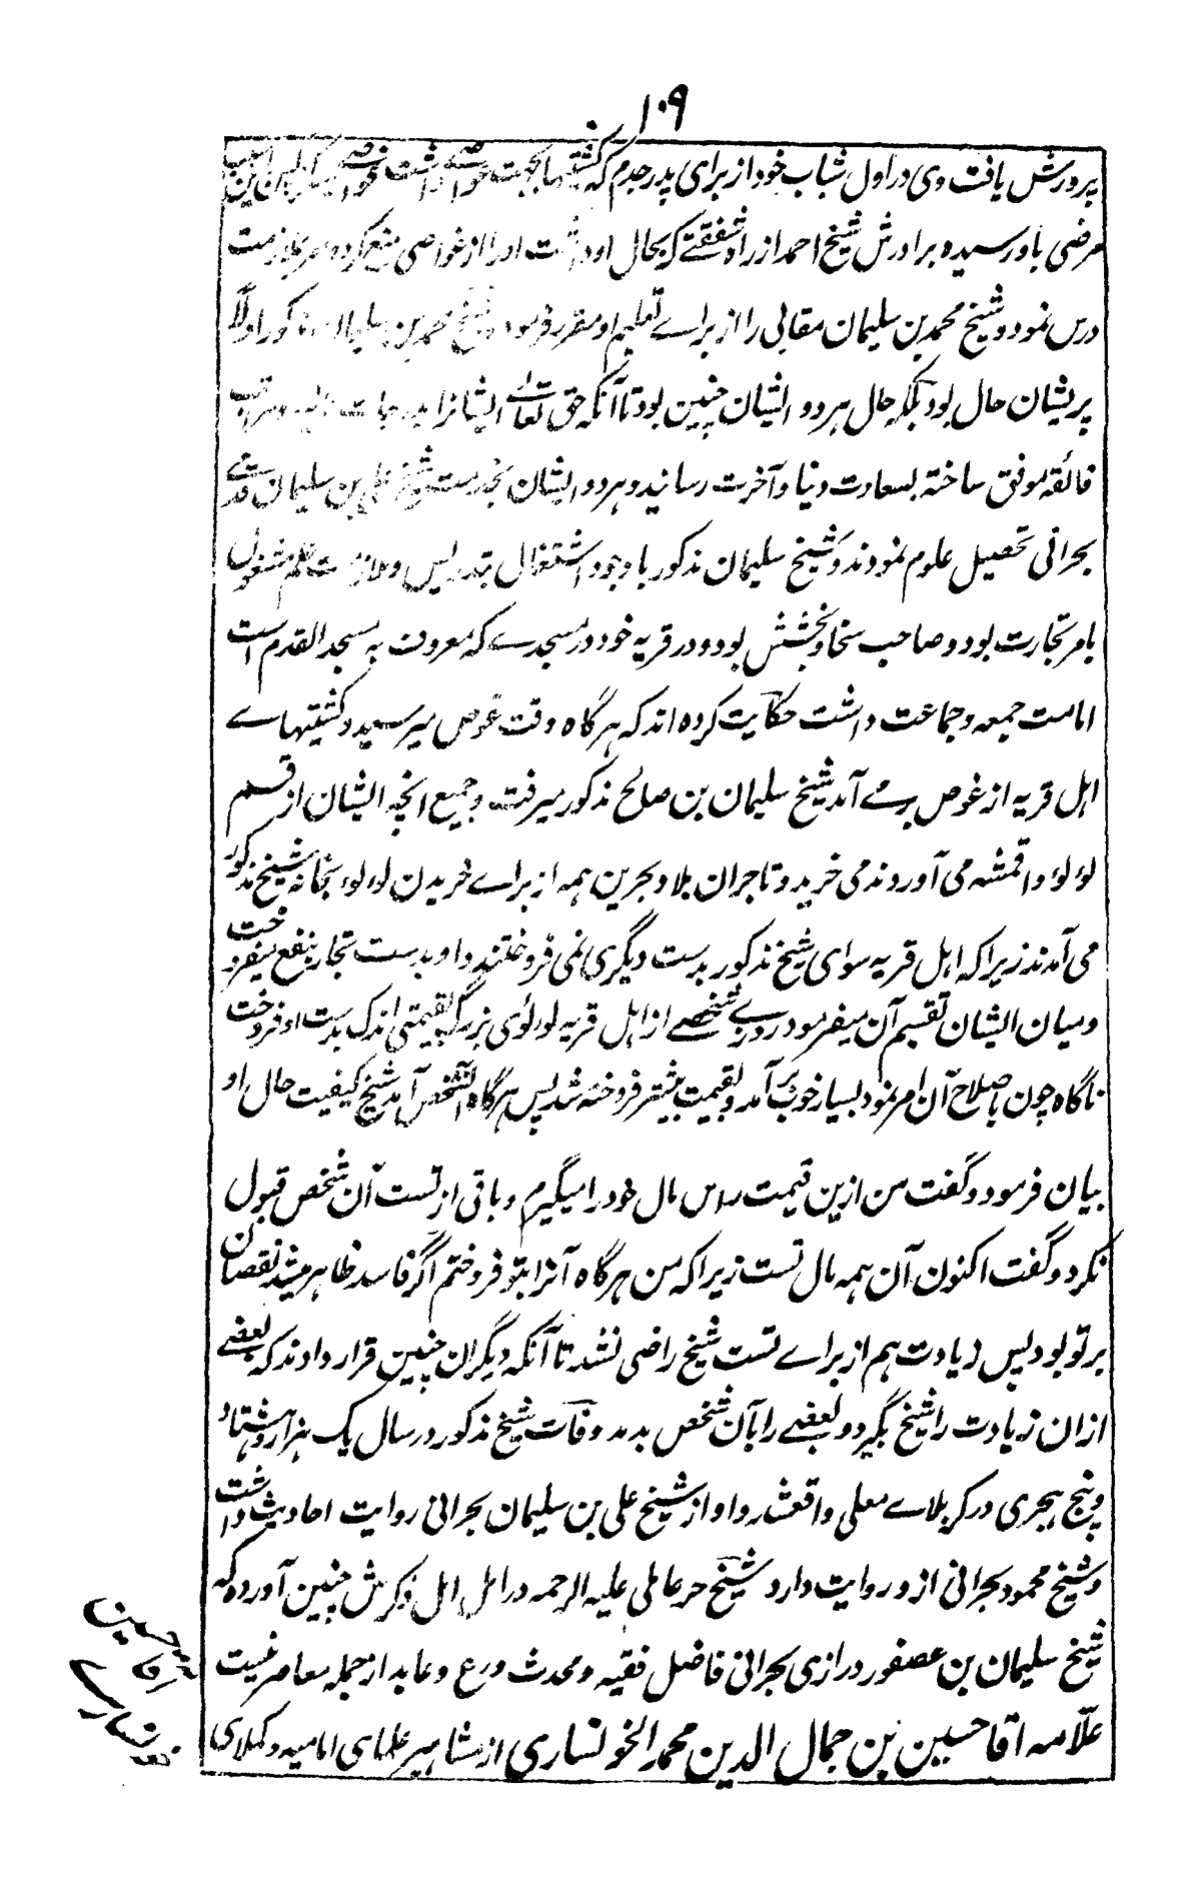 ۱۰۹
پرورش یافت وی در اول شباب خود از برای پدر جدم که کشتیها بجهت غواصی داشت غواصی
مرضی باو رسیده برادرش شیخ احمد از راه شفقتے که بحال او داشت او را از غواصی منع کرده امر بملازمت
درس نمود و شیخ محمد بن سلیمان مقابی را از براے تعلیم او مقرر فرمود شیخ محمد بن سلیمان مذکور اولاً
پریشان حال بود بلکه حال هر دو ایشان چنین بود تا آنکه حق تعالےٰ ایشانرا بدرجات
فائقه موفق ساخته بسعادت دنیا و آخرت رسانید و هر دو ایشان بخدمت شیخ علی بن سلیمان قدمے
بحرانی تحصیل علوم نمودند و شیخ سلیمان مذکور با وجود اشتغال بتدریس و ملازمت علم مشغول
بامر تجارت بود و صاحب سخا و بخشش بود و در قریه خود در مسجدے که معروف به مسجد القدم است
امامت جمعه و جماعت داشت حکایت کرده اند که هرگاه وقت غوص میرسید و کشتیهاے
اهل قریه از غوص برمے آمد شیخ سلیمان بن صالح مذکور میرفت و جمیع انچه ایشان از قسم
لؤلؤ و اقمشه می آوردند می خرید و تاجران بلاد بحرین همه از براے خریدن لؤلؤ بخانه شیخ مذکور
می آمدند زیرا که اهل قریه سوای شیخ مذکور بدست دیگری نمی فروختند و او بدست تجار بنفع میفروخت
و میان ایشان تقسیم آن میفرمود روزے شخصے از اهل قریه لولوئی بزرگ بقیمتی اندک بدست او فروخت
ناگاه چون باصلاح آن امر نمود بسیار خوب برآمد و بقیمت بیشتر فروخته شد پس هرگاه آنشخص آمد شیخ کیفیت حال او
بیان فرمود و گفت من ازین قیمت راس مال خود را میگیرم و باقی از تست آن شخص قبول
نکرد و گفت اکنون آن همه مال تست زیرا که من هرگاه آنرا بتو فروختم اگر فاسد ظاهر میشد نقصان
بر تو بود پس زیادت هم از براے تست شیخ راضی نشد تا آنکه دیگران چنین قرار دادند که بعضے
ازان زیادت را شیخ بگیرد و بعضے را بآن شخص بدهد وفات شیخ مذکور در سال یک هزار و هشتاد
و پنج هجری در کربلاے معلی واقعشد و او از شیخ علی بن سلیمان بحرانی روایت احادیث داشت
و شیخ محمود بحرانی ازو روایت دارد و شیخ حر عاملی علیه الرحمه در امل الامل ذکرش چنین آورده که
شیخ سلیمان بن عصفور درازی بحرانی فاضل فقیه و محدث ورع و عابد از جمله معاصرینست
علّامه آقا حسین بن جمال الدین محمد الخوانساری از مشاهیر علمای امامیه و کملای
حسین
آقا
خونساری